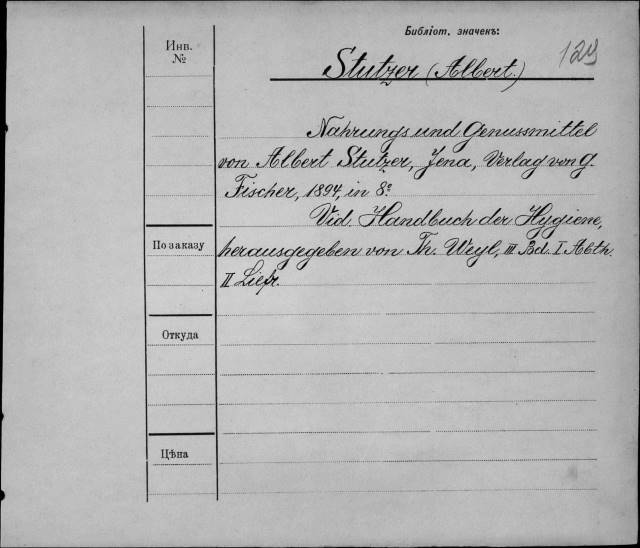 Библіот. значекъ:
129
Инв.
№
Stutzer (Albert.)
Nahrungs und Genussmittel
von Albert Stutzer, Jena, Verlag von G.
Fischer, 1894, in 8º
Vid. Handbuch der Hygiene,
По заказу
herausgegeben von Th. Weyl, III Bd. I Abth.
II Liefr.
Откуда
Цѣна